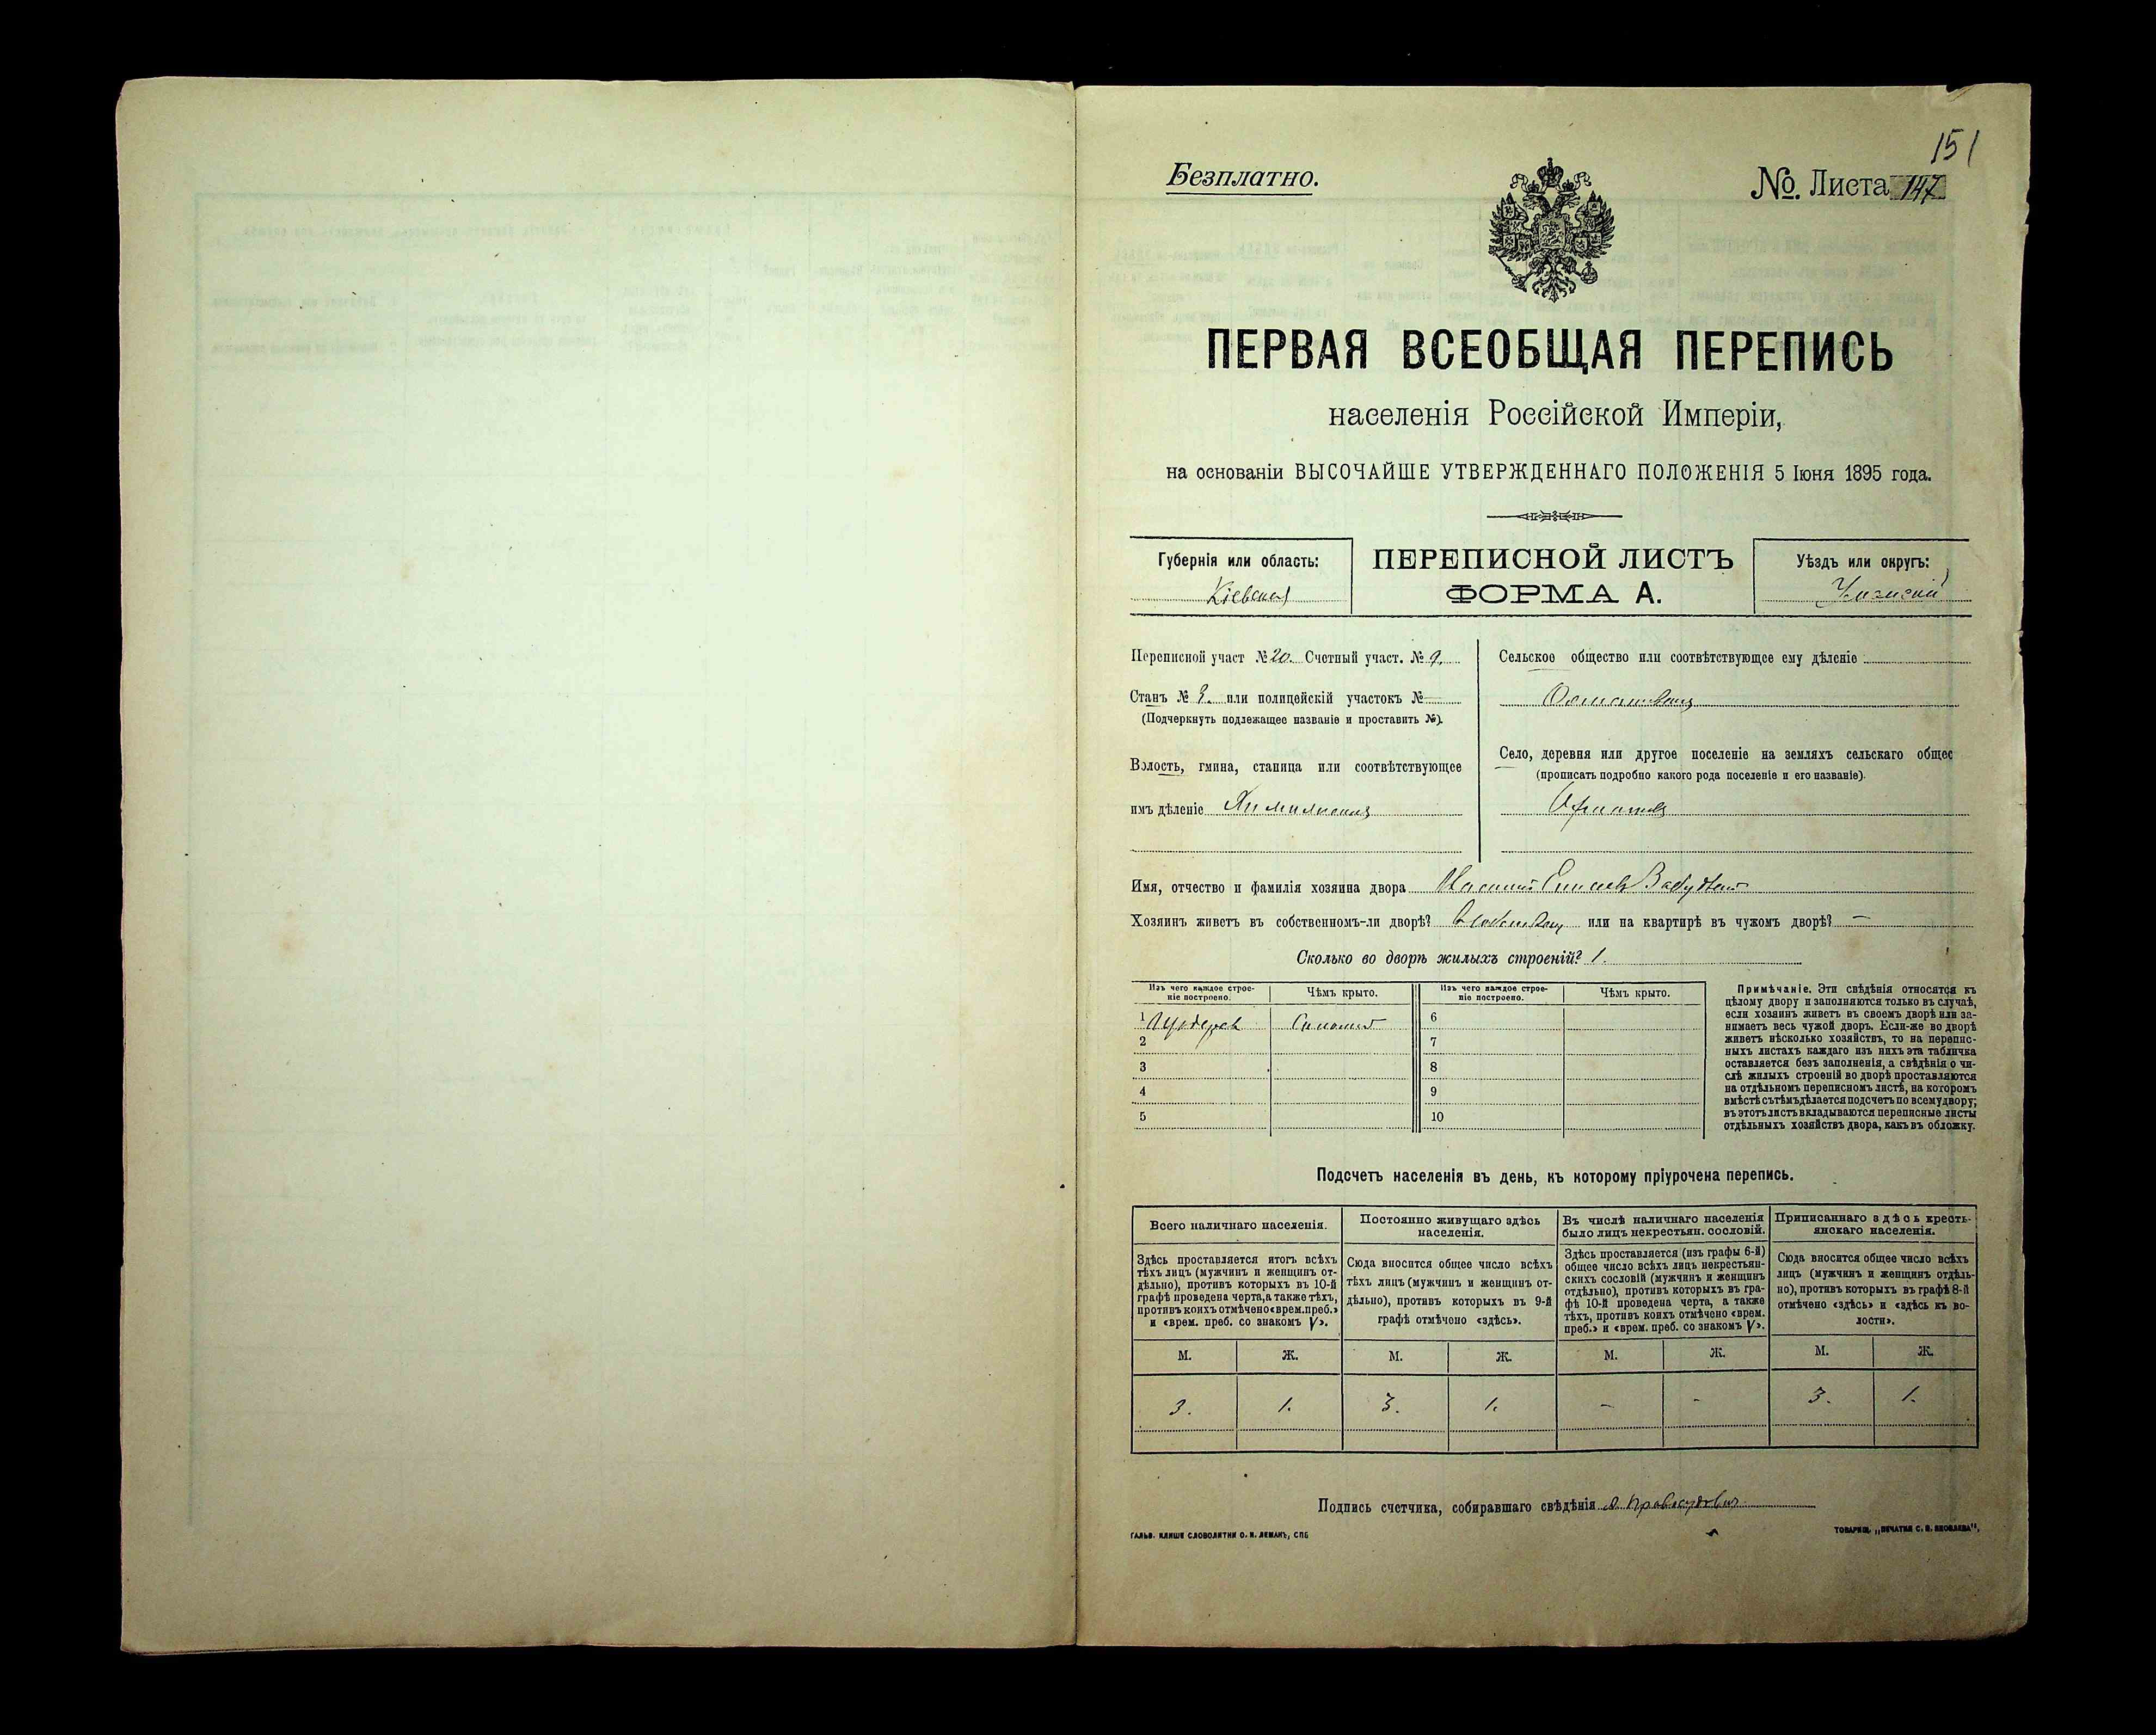 151
Безплатно.
№. Листа 147
ПЕРВАЯ ВСЕОБЩАЯ ПЕРЕПИСЬ
населенія Россійской Имперіи,
на основаніи ВЫСОЧАЙШЕ УТВЕРЖДЕННАГО ПОЛОЖЕНІЯ 5 Іюня 1895 года.
Губернія или область:
Кіевская
ПЕРЕПИСНОЙ ЛИСТЪ
ФОРМА А.
Уѣздъ или округъ:
Переписной участ №20. Счетный участ. № 9.
Станъ № 3. или полицейскій участокъ № —
(Подчеркнуть подлежащее названіе и проставить №).
Волость, гмина, станица или соотвѣтствующее
имъ дѣленіе
Сельское общество или соотвѣтствующее ему дѣленіе
Село, деревня или другое поселеніе на земляхъ сельскаго общес
(прописать подробно какого рода поселеніе и его названіе).
Имя, отчество и фамилія хозяина двора
Хозяинъ живетъ въ собственномъ-ли дворѣ? или на квартирѣ въ чужомъ дворѣ? —
Сколько во дворѣ жилыхъ строеній? 1.
Изъ чего каждое строе-
ніе построено.
Чѣмъ крыто.
Изъ чего каждое строе-
ніе построено.
Чѣмъ крыто.
1 Соломой 6
2 7
3 8
4 9
5 10
Примѣчаніе. Эти свѣдѣнія относятся къ
цѣлому двору и заполняются только въ случаѣ,
если хозяинъ живетъ въ своемъ дворѣ или за-
нимаетъ весь чужой дворъ. Если-же во дворѣ
живетъ нѣсколько хозяйствъ, то на перепис-
ныхъ листахъ каждаго изъ нихъ эта табличка
оставляется безъ заполненія, а свѣдѣнія о чи-
слѣ жилыхъ строеній во дворѣ проставляются
на отдѣльномъ переписномъ листѣ, на которомъ
вмѣстѣ съ тѣмъ дѣлается подсчетъ по всему двору;
въ этотъ листъ вкладываются переписные листы
отдѣльныхъ хозяйствъ двора, какъ въ обложку.
Подсчетъ населенія въ день, къ которому пріурочена перепись.
Всего наличнаго населенія.
Здѣсь проставляется итогъ всѣхъ
тѣхъ лицъ (мужчинъ и женщинъ от-
дѣльно), противъ которыхъ въ 10-й
графѣ проведена черта, а также тѣхъ,
противъ коихъ отмѣчено «врем. преб.»
и «врем. преб. со знакомъ V».
Постоянно живущаго здѣсь
населенія.
Сюда вносится общее число всѣхъ
тѣхъ лицъ (мужчинъ и женщинъ от-
дѣльно), противъ которыхъ въ 9-й
графѣ отмѣчено «здѣсь».
Въ числѣ наличнаго населенія
было лицъ некрестьян. сословій.
Здѣсь проставляется (изъ графы 6-й)
общее число всѣхъ лицъ некрестьян-
скихъ сословій (мужчинъ и женщинъ
отдѣльно), противъ которыхъ въ гра-
фѣ 10-й проведена черта, а также
тѣхъ, противъ коихъ отмѣчено «врем.
преб.» и «врем. преб. со знакомъ V».
Приписаннаго здѣсь кресть-
янскаго населенія.
Сюда вносится общее число всѣхъ
лицъ (мужчинъ и женщинъ отдѣль-
но), противъ которыхъ въ графѣ 8-й
отмѣчено «здѣсь» и «здѣсь къ во-
лости».
М. Ж. М. Ж. М. Ж. М. Ж.
3. 1. 3. 1. - - 3. 1.
Подпись счетчика, собиравшаго свѣдѣнія
ГАЛЬВ. КЛИШЕ СЛОВОЛИТНИ О. И. ЛЕМАНЪ, СПБ
ТОВАРИЩ. „ПЕЧАТНЯ С. П. ЯКОВЛЕВА".